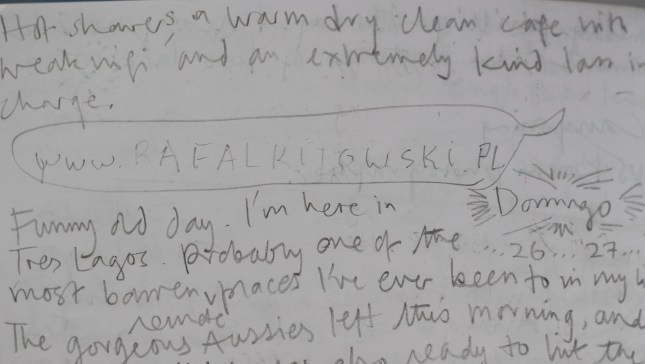 Hot showers, a warm dry clean cafe with
weak wifi and an extremely kind man in
charge.
www.RAFALKITOWSKI.PL
Domingo
Funny old day. I'm here in
Tres Lagos. Probably one of the ...26...27...
most barren, remote places I've ever been to in my
The gorgeous Aussies left this morning, and
also ready to hit the